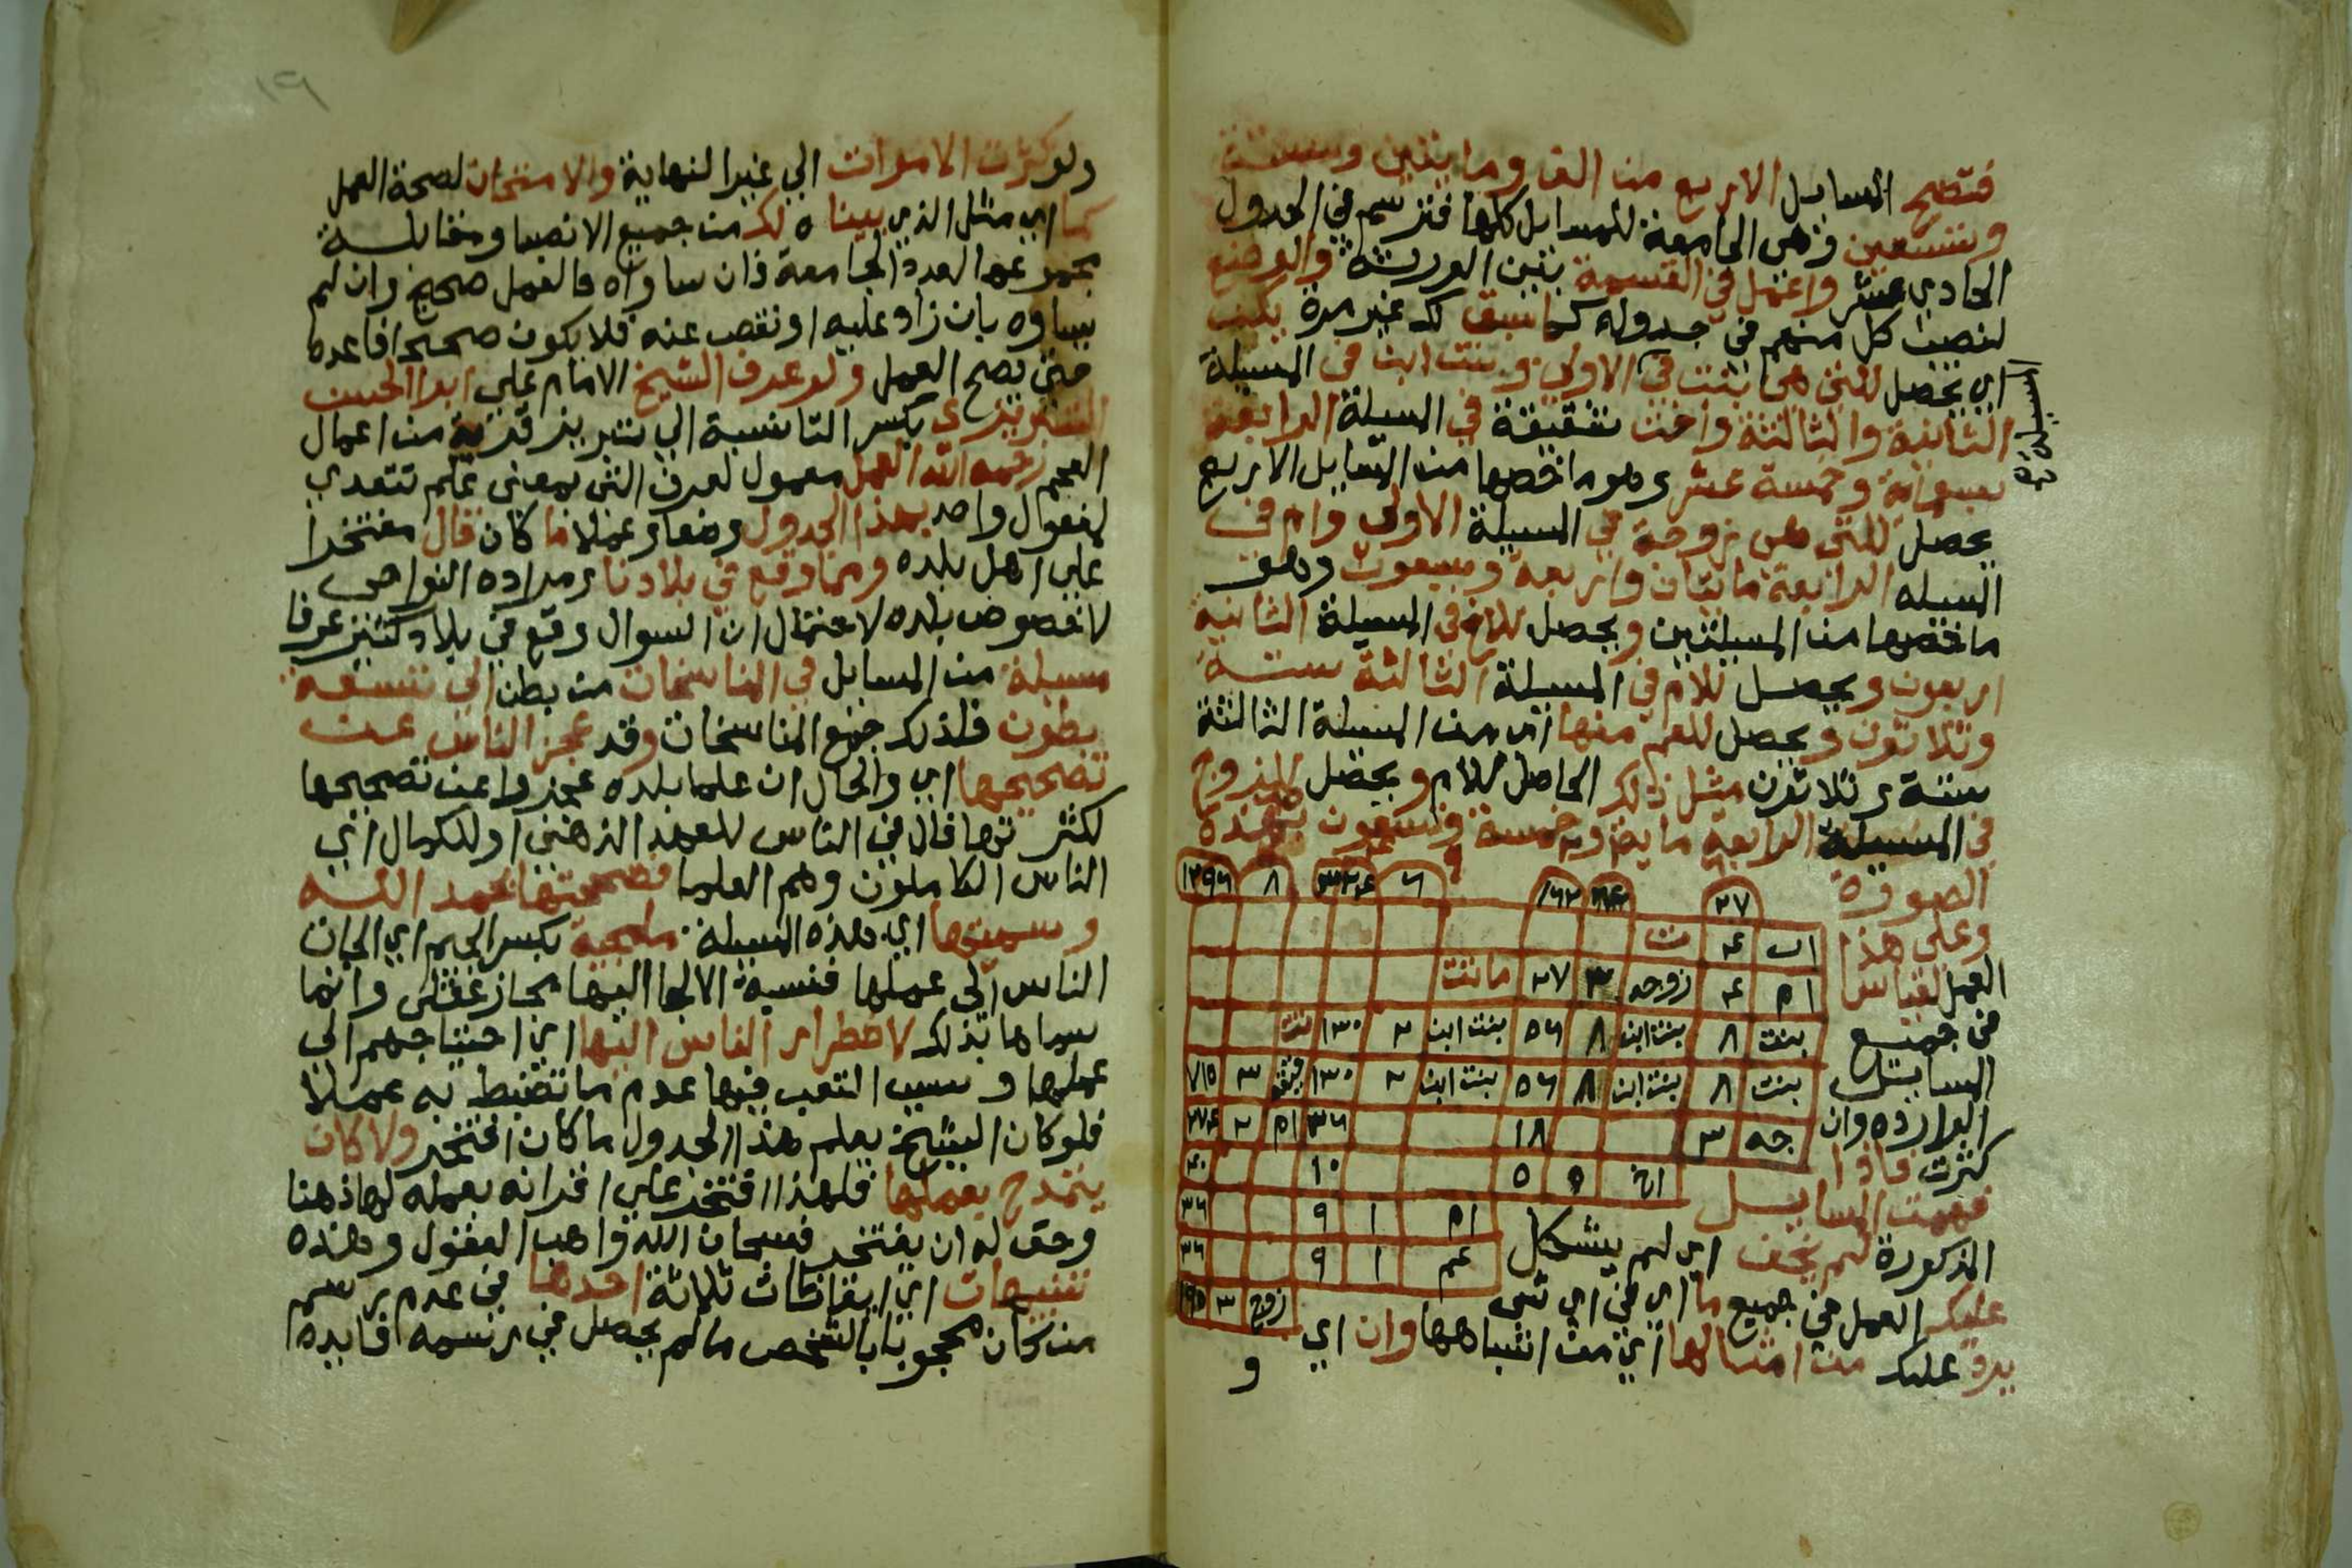 فتصح المسايل الاربع من الف ومايتين وستة
وتسعين وهي الجامعة للمسايل كلها فترسم في الجدول
الحادي عشر واعمل في القسمة بين الورثة والوضع
لنصيب كل منهم في جدوله كما سبق لك غير مرة يكن
اي يحصل للتي هي بنت في الاولى وبنت ابن في المسيلة
الثانية والثالثة واخت شقيقة في المسيلة الرابعة
سبعماية وخمسة عشر وهو ما خصها من المسايل الاربع
يحصل للتي هي زوجة في المسيلة الاولى وام في
المسيله الرابعة مايتان واربعة وسبعون وهو
ما خصها من المسيلتين ويحصل للاخ في المسيلة الثانية
اربعون ويحصل للام في المسيلة الثالثة ستة
وثلاثون ويحصل للعم منها اي من المسيلة الثالثة
ستة وثلاثون مثل ذلك الحاصل للام ويحصل للزوج
في المسيلة الرابعة ماية وخمسة وتسعون بهذه
الصورة
٢٧ ١٦٢ ٦ ٣٢٤ ٨ ١٢٩٦
وعلى هذا
العمل لقياس
في جميع
المسايل
الواردة وان
كثرت فاذا
فهمت المسايل
اب ٤ ت
ام ٤ زوجه ٣ ٢٧ ماتت
بنت ٨ بنت ابن ٨ ٥٦ بنت ابن ٢ ١٣٠ تت
بنت ٨ بنت ابن ٨ ٥٦ بنت ابن ٢ ١٣٠ ٣ ٧١٥
جه ٣ ١٨ ٣٦ ام ٢ ٢٧٤
اخ ٥ ٥ ١٠ ٤٠
ام ١ ٩ ٣٦
عم ١ ٩ ٣٦
زوج ٣ ١٩٥
المذكورة لم يخف اي لم يشكل
عليك العمل في جميع ما اي في اي شي
يرد عليك من امثالها اي من اشباهها وان اي
و
ولو كثرت الاموات الي غير النهاية والامتحان لصحة العمل
كما اي مثل الذي بيناه لك من جميع الانصبا ومقابلة
مجموعها العدد الجامعة فان ساواه فالعمل صحيح وان لم
يساوه بان زاد عليه او نقص عنه فلا يكون صحيحا فاعده
حتي يصح العمل ولو عرف الشيخ الامام علي ابو الحسن
التبريزي بكسر التا نسبة الي تبريز قرية من اعمال
العجم رحمه الله العمل معمول لعرف التي بمعني علم تتعدي
لمفعول واحد بهذا الجدول وضعا وعملا ما كان قال مفتخرا
علي اهل بلده ومما وقع في بلادنا ومراده النواحي
لا خصوص بلده لاحتمال ان السوال وقع في بلاد كثيرة عرفا
مسيلة من المسايل في المناسخات من بطن الى تسعة
بطون فلذلك جمع المناسخات وقد عجز الناس عن
تصحيحها اي والحال ان علما بلده عجزوا عن تصحيحها
لكثرتها فال في الناس للعهد الذهني او للكمال اي
الناس الكاملون وهم العلما فصححتها بحمد الله
وسميتها اي هذه المسيلة ملجية بكسر الجيم اي الجات
الناس الى عملها فنسبة الالجا اليها مجاز عقلي وانما
سماها بذلك لاضطرار الناس اليها اي احتياجهم الي
عملها وسبب التعب فيها عدم ما تضبط به عملا
فلو كان الشيخ يعلم هذا الجدول ما كان افتخر ولا كان
يتمدح بعملها فلهذا افتخر علي اقرانه بعمله لها ذهنا
وحق له ان يفتخر فسبحان الله واهب العقول وهذه
تنبيهات اي ايقاظات ثلاثة احدها في عدم رسم
من كان محجوبا بالشخص ما لم يحصل في رسمه افايده